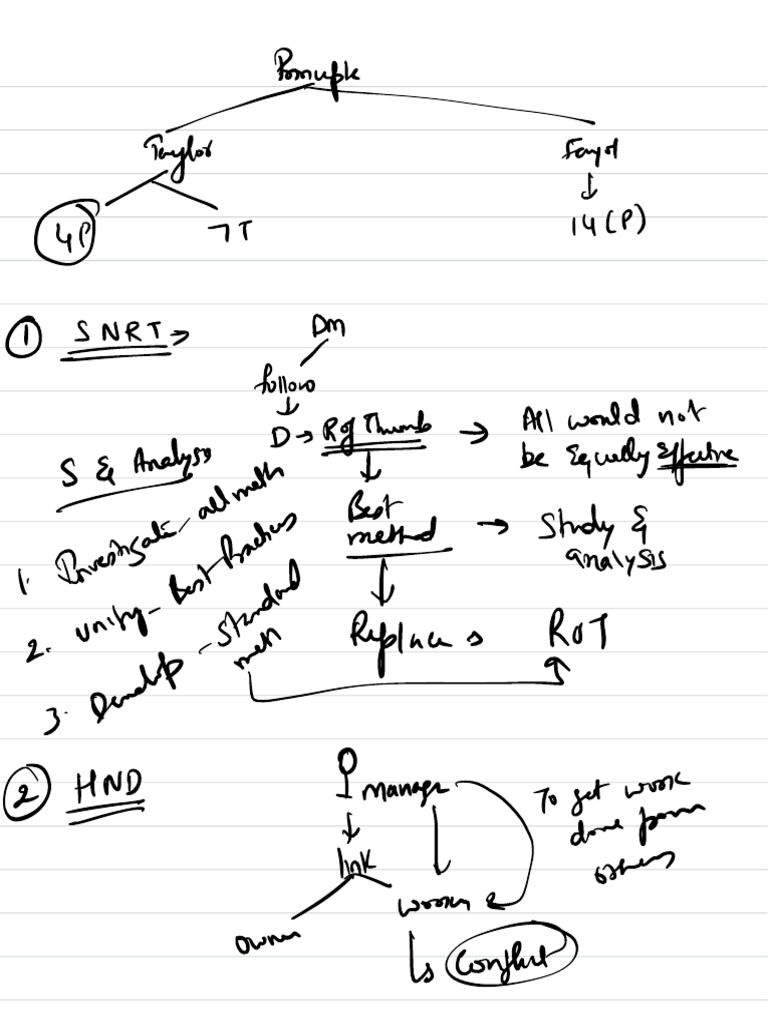 Principle
Taylor
Fayol
4P
7T
14(P)
① SNRT →
Dm
follow
D → R of Thumb → All would not
be Equally Effective
S & Analysis
1. Investigate - all meth
2. Unify - Best Practices
3. Develop - Standard
meth
Best
method → Study &
analysis
Replace s ROT
② HND
manager
To get work
done from
others
link
owner
worker
Conflict